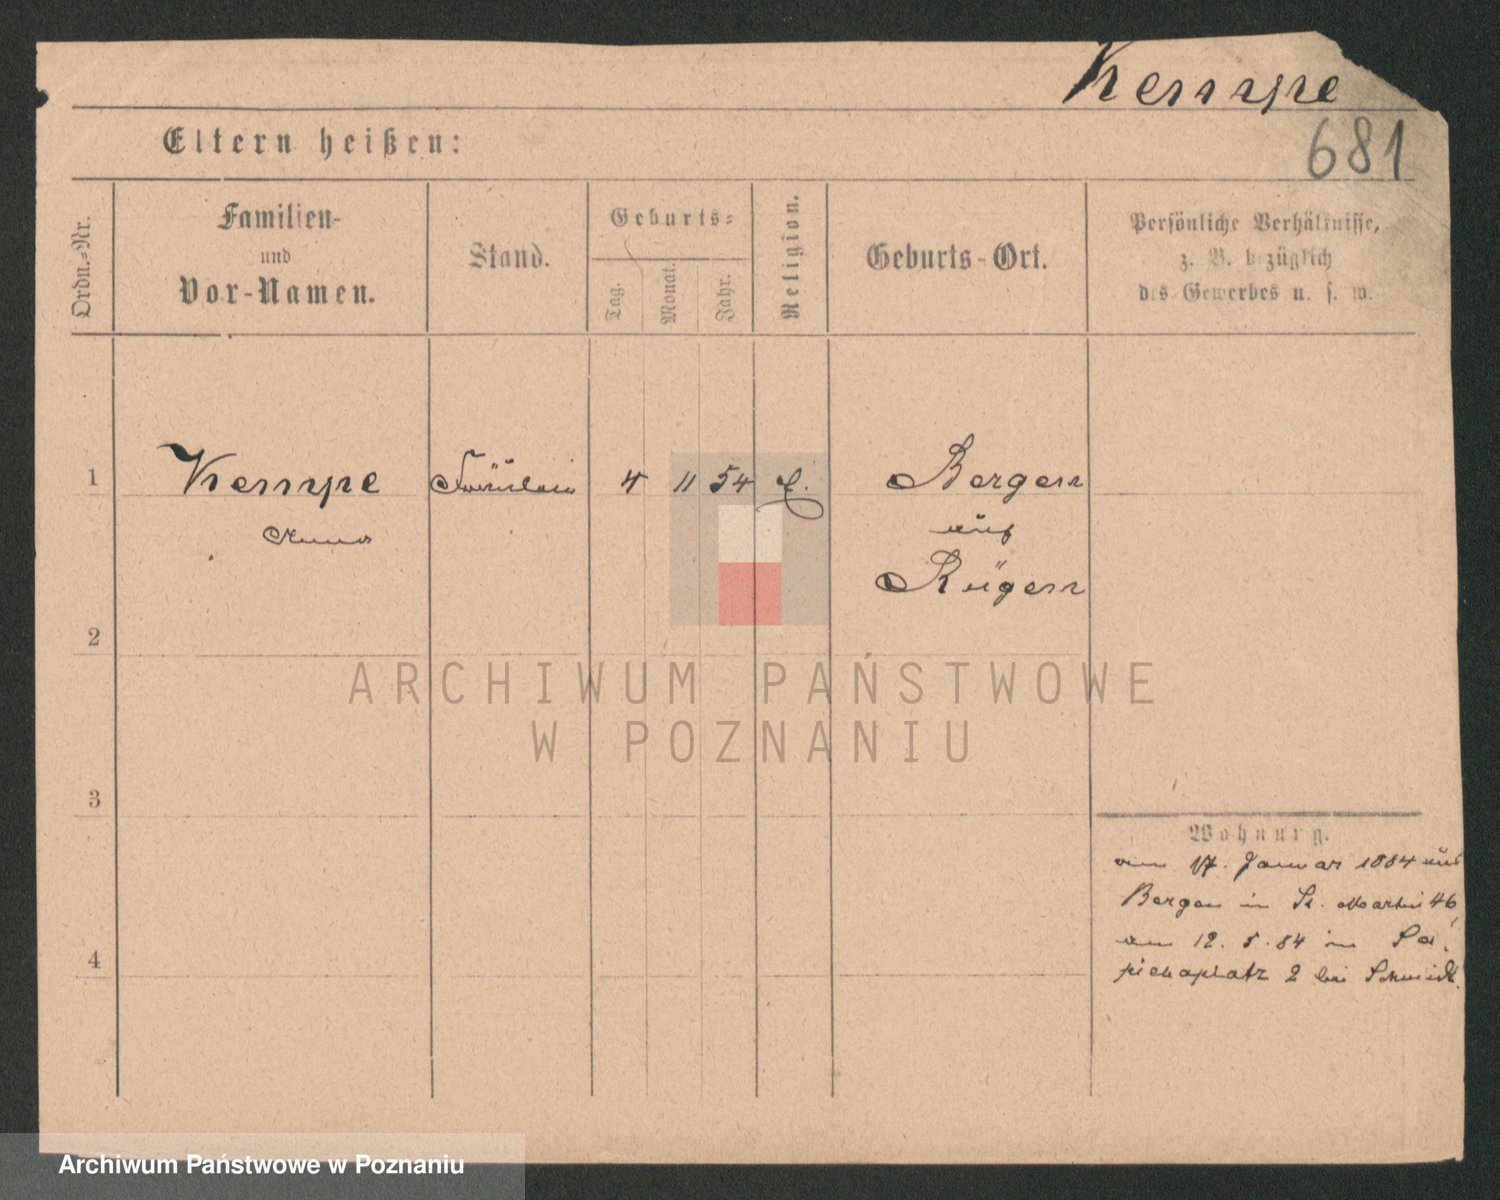 Kempe
681
Eltern heißen:
Ordn.-Nr.
Familien-
und
Vor-Namen.
Stand.
Geburts-
Tag.
Monat.
Jahr.
Religion.
Geburts-Ort.
Persönliche Verhältnisse,
z. B. bezüglich
des Gewerbes u. s. w.
1 Kempe Fräulein 4 11 54 E. Bergen
Anna auf
Rügen
2
3
4
Wohnung.
am 17. Januar 1884 aus
Bergen in St. Martin 46
am 12. 5. 84 in Sa-
piehaplatz 2 bei Schmidt.
ARCHIWUM PAŃSTWOWE
W POZNANIU
Archiwum Państwowe w Poznaniu